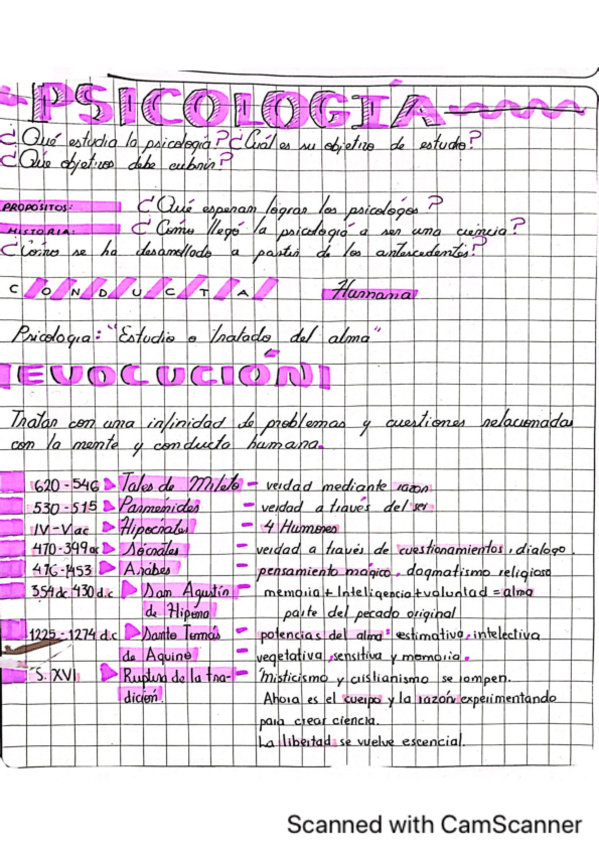 PSICOLOGÍA
¿Qué estudia la psicología? ¿Cuál es su objetivo de estudio?
¿Que objetivos debe cubrir?
PROPÓSITOS: ¿Qué esperan lograr los psicólogos?
HISTORIA: ¿Cómo llegó la psicología a ser una ciencia?
¿Cómo se ha desarrollado a partir de los antecedentes?
C/O/N/D/U/C/T/A/ Humana
Psicologia: "Estudio o tratado del alma"
EVOCUCIÓN
Tratan con una infinidad de problemas y cuestiones relacionadas
con la mente y conducta humana.
620-546 Tales de Mileto - verdad mediante razon
530-515 Parmenides - verdad a través del ser
IV-V ac Hipócrates - 4 Humores
470-399 ac Sócrates - verdad a través de cuestionamientos, dialogo.
476-1453 Arabes - pensamiento mágico, dogmatismo religioso
354 dc 430 d.c San Agustín - memoria + Inteligencia + voluntad = alma
de Hipona parte del pecado original
1225-1274 d.c Santo Tomás - potencias del alma: estimativa, intelectiva
de Aquino - vegetativa, sensitiva y memoria.
S. XVI Ruptura de la tra- - Misticismo y cristianismo se rompen.
dición. Ahora es el cuerpo y la razón experimentando
para crear ciencia.
La libertad se vuelve escencial.
Scanned with CamScanner